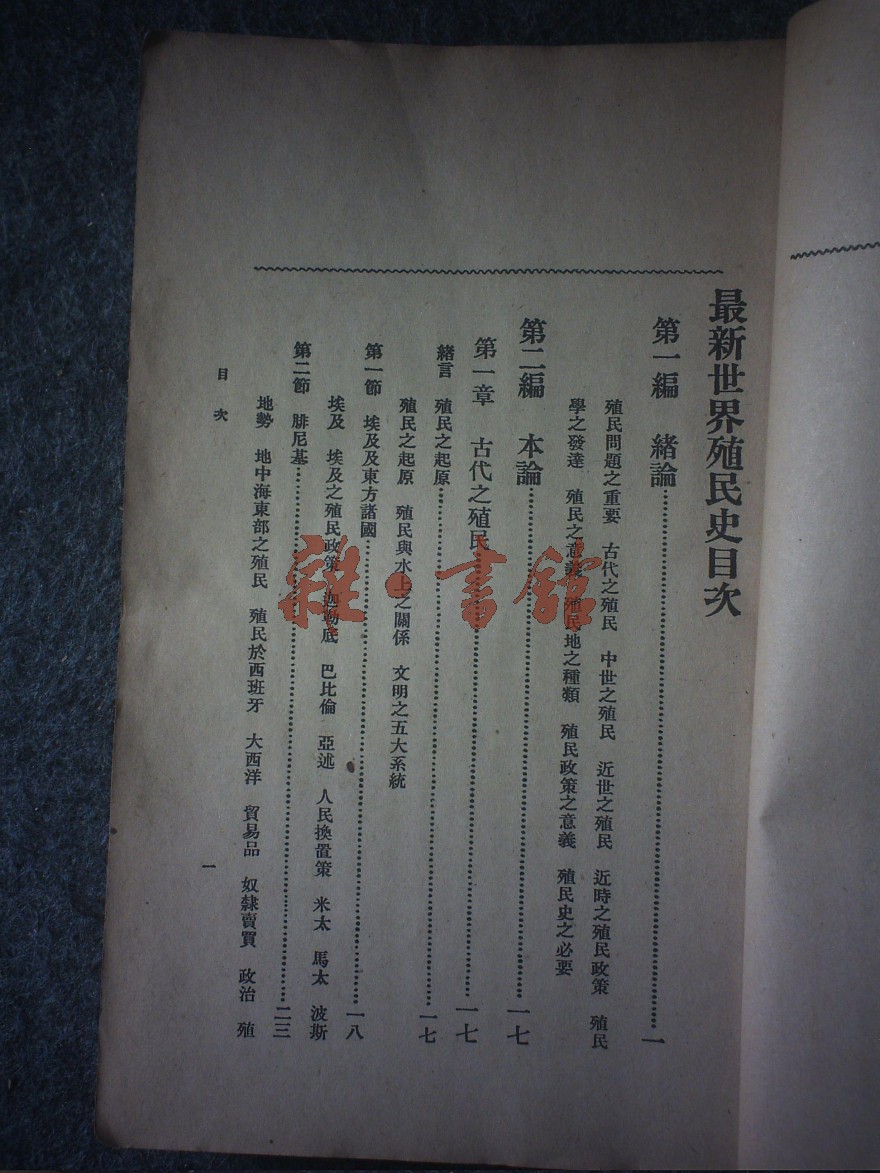 最新世界殖民史目次
第一編　緒論……一
殖民問題之重要　古代之殖民　中世之殖民　近世之殖民　近時之殖民政策　殖民
學之發達　殖民之意義　殖民地之種類　殖民政策之意義　殖民史之必要
第二編　本論……一七
第一章　古代之殖民……一七
緒言　殖民之起原……一七
殖民之起原　殖民與水上之關係　文明之五大系統
第一節　埃及及東方諸國……一八
埃及　埃及之殖民政策　迦勒底　巴比倫　亞述　人民換置策　米太　馬太　波斯
第二節　腓尼基……二三
地勢　地中海東部之殖民　殖民於西班牙　大西洋　貿易品　奴隸賣買　政治　殖
目次
一
雜·書館